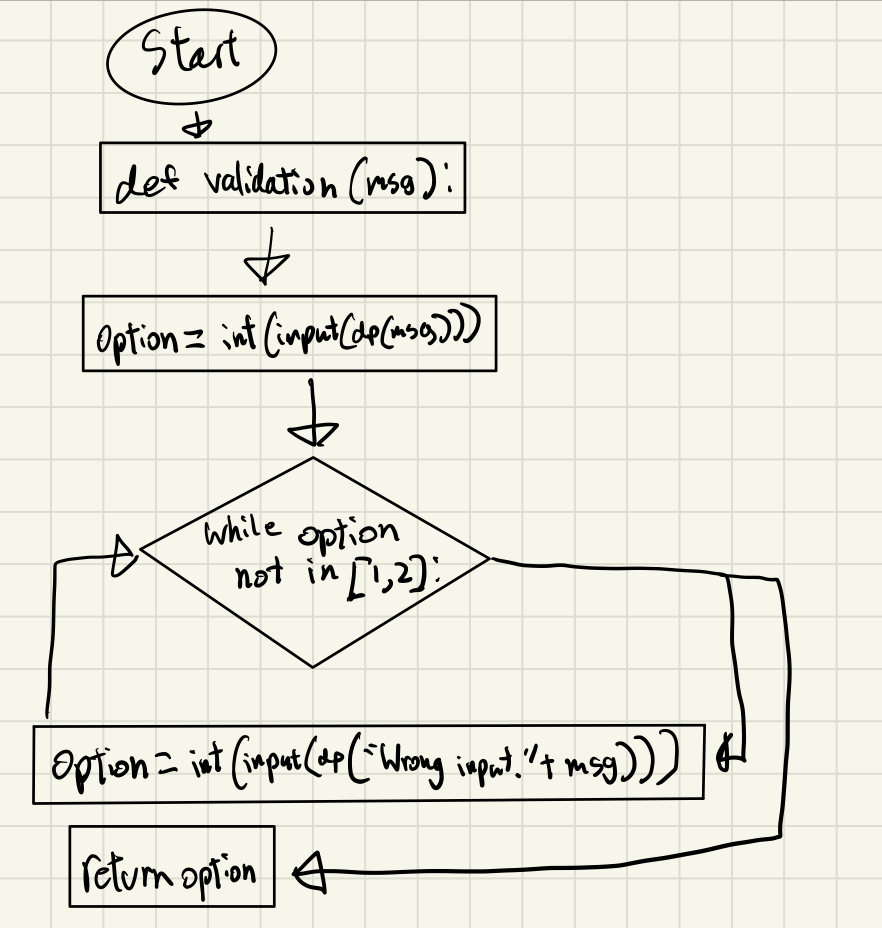 Start
def validation (msg):
option = int(input(dp(msg)))
while option
not in [1,2]:
option = int(input(dp("Wrong input."+ msg)))
return option